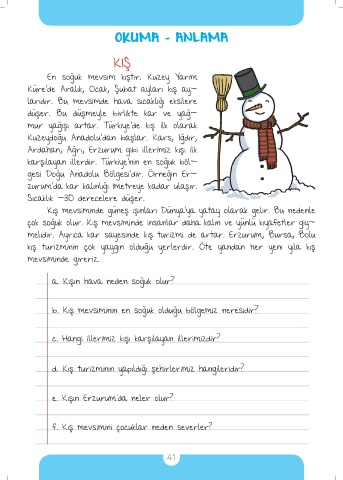 OKUMA - ANLAMA
KIŞ
En soğuk mevsim kıştır. Kuzey Yarım
Küre'de Aralık, Ocak, Şubat ayları kış ay-
larıdır. Bu mevsimde hava sıcaklığı eksilere
düşer. Bu düşmeyle birlikte kar ve yağ-
mur yağışı artar. Türkiye'de kış ilk olarak
Kuzeydoğu Anadolu'dan başlar. Kars, Iğdır,
Ardahan, Ağrı, Erzurum gibi illerimiz kışı ilk
karşılayan illerdir. Türkiye'nin en soğuk böl-
gesi Doğu Anadolu Bölgesi'dir. Örneğin Er-
zurum'da kar kalınlığı metreye kadar ulaşır.
Sıcaklık -30 derecelere düşer.
Kış mevsiminde güneş ışınları Dünya'ya yatay olarak gelir. Bu nedenle
çok soğuk olur. Kış mevsiminde insanlar daha kalın ve yünlü kıyafetler giy-
melidir. Ayrıca kar sayesinde kış turizmi de artar. Erzurum, Bursa, Bolu
kış turizminin çok yaygın olduğu yerlerdir. Öte yandan her yeni yıla kış
mevsiminde gireriz.
a. Kışın hava neden soğuk olur?
b. Kış mevsiminin en soğuk olduğu bölgemiz neresidir?
c. Hangi illerimiz kışı karşılayan illerimizdir?
d. Kış turizminin yapıldığı şehirlerimiz hangileridir?
e. Kışın Erzurum'da neler olur?
f. Kış mevsimini çocuklar neden severler?
41